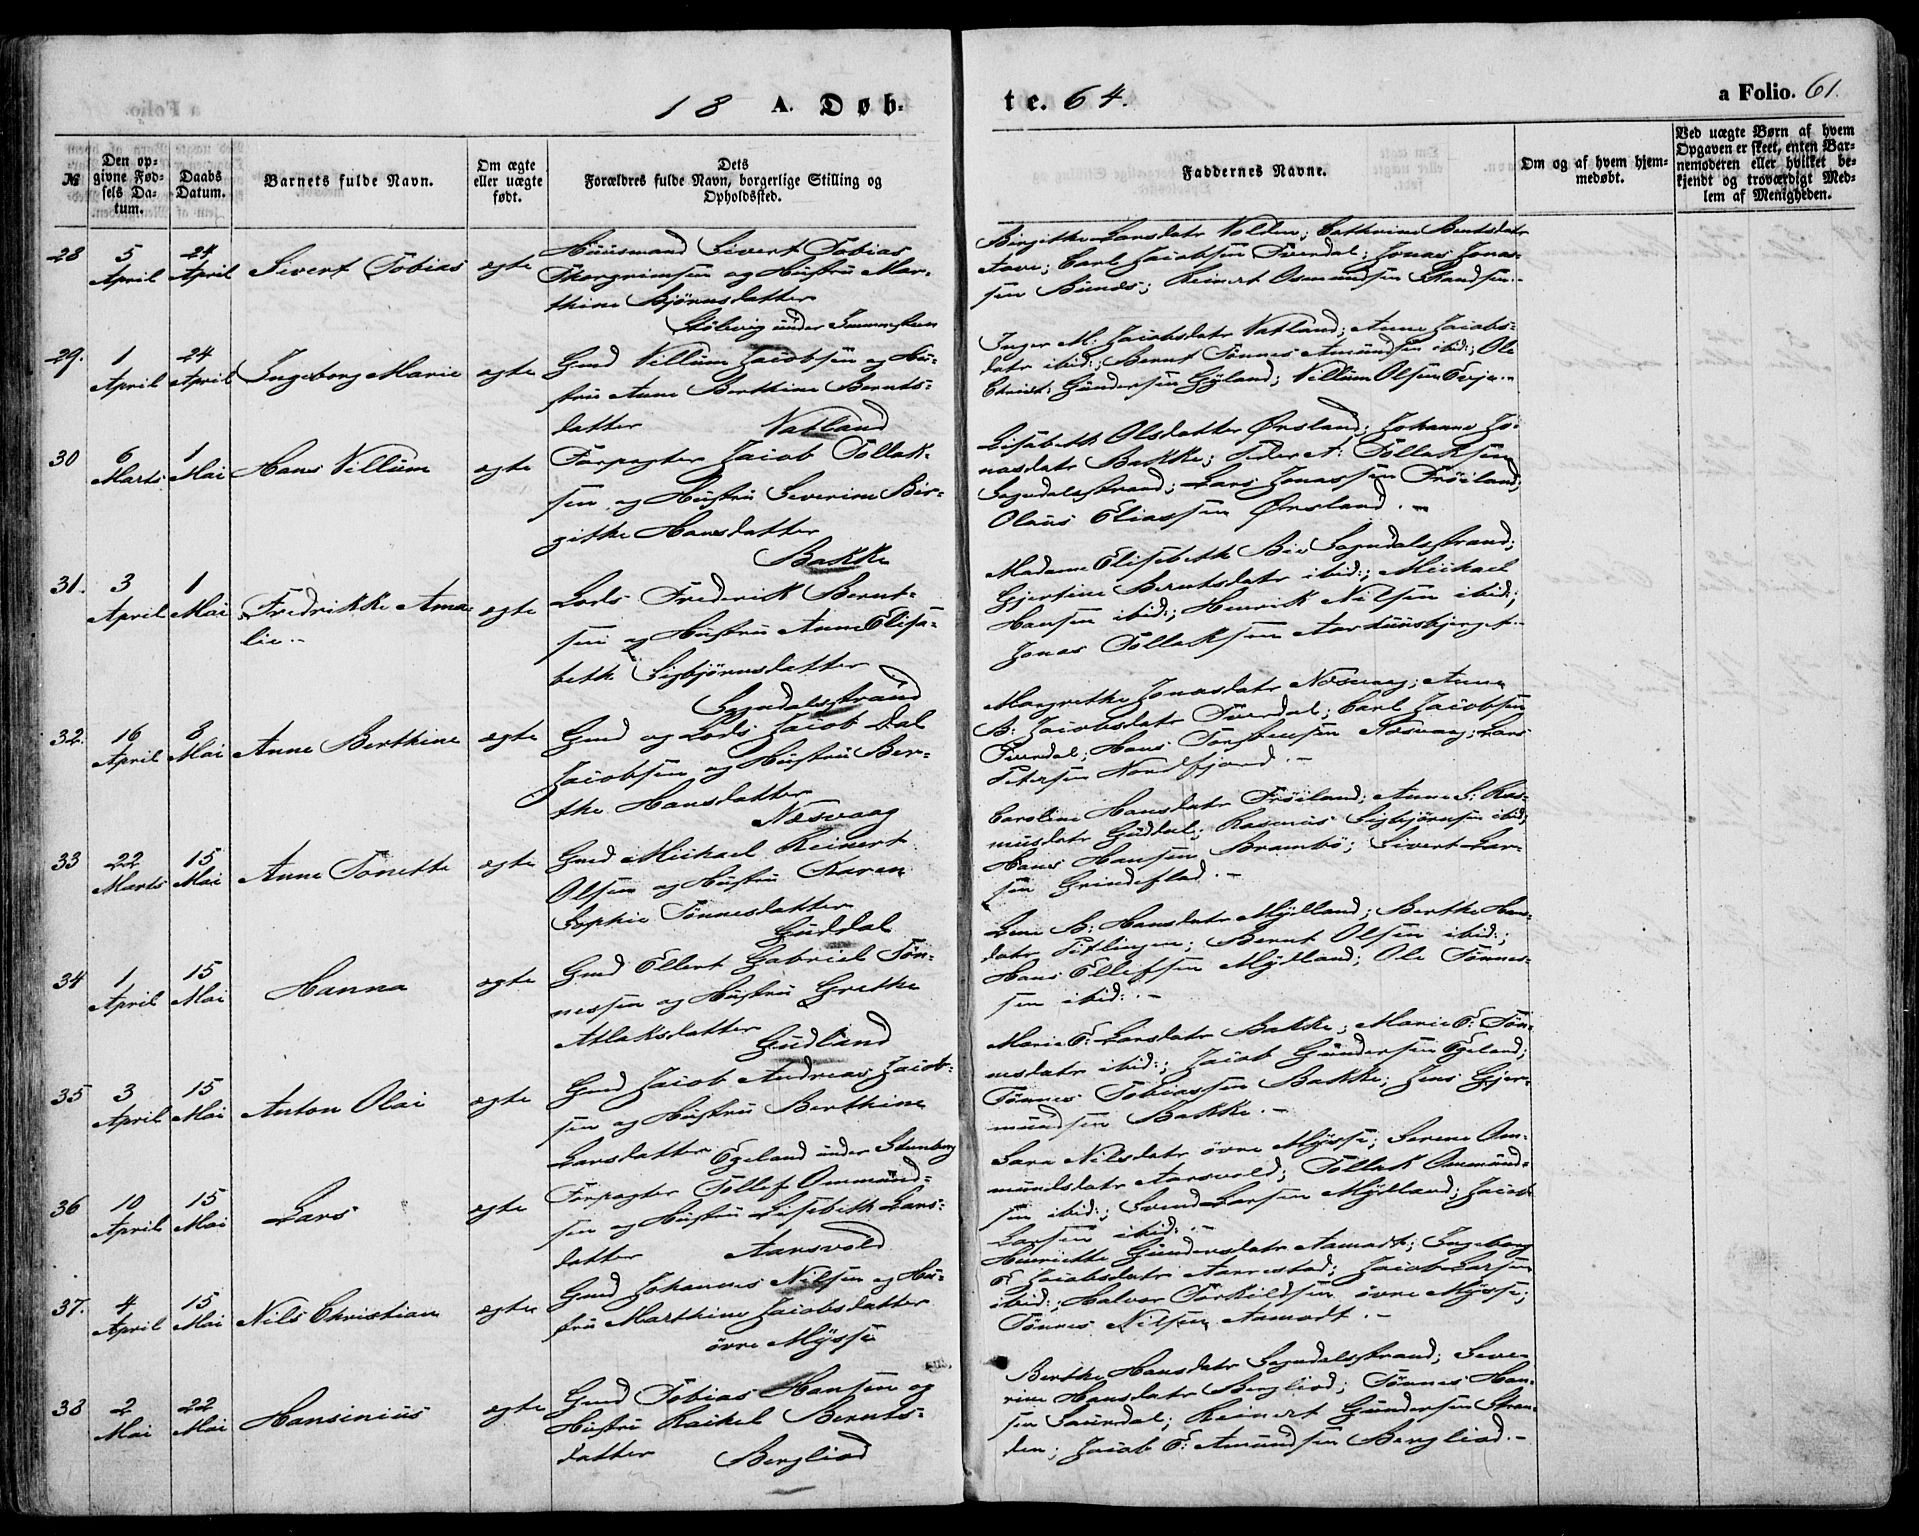 18 A. Døb-
te. 64.
a Folio. 61.
№
Den op-
givne Fød-
sels Da-
tum.
Daabs
Datum.
Barnets fulde Navn.
Om ægte
eller uægte
født.
Dets
Forældres fulde Navn, borgerlige Stilling og
Opholdssted.
Faddernes Navne.
Om og af hvem hjem-
medøbt.
Ved uægte Børn af hvem
Opgaven er skeet, enten Bar-
nemoderen eller hvilket be-
kjendt og troværdigt Med-
lem af Menigheden.
28 5 April 24 April Sivert Tobias ægte
Huusmand Sivert Tobias
Thorgrimsen og Hustru Mar-
thine Bjørnsdatter
under
Birgithe Larsdatr Volden; Cathrine Berntsdatr
Aave; Carl Jacobsen Tverdal; Jonas Jonas-
sen Bunæs; Reinert Osmundsen
29. 1 April 24 April Ingeborg Marie ægte
Gmd Villum Jacobsen og Hu-
stru Anne Berthine Bernts-
datter Natland
Inger M: Jacobsdatr Natland; Anne Jacobs-
datr ibid:; Bernt Tønnes Amundsen ibid:; Ole
Christ: Gundersen Gyland; Villum Olsen Evje.-
30 6 Marts 1 Mai Hans Villum ægte
Forpagter Jacob Tollak-
sen og Hustru Severine Bir-
githe Hansdatter
Bakke
Lisabeth Olsdatter Ørsland; Johanne Jo-
nasdatr Bakke; Peder A: Tollaksen
Sogndalsstrand; Lars Jonassen Frøiland;
Olaus Eliassen Ørsland.-
31. 3 April 1 Mai Fredrikke Ama-
lie.- ægte
Lods Frederik Bernt-
sen og Hustru Anne Elisa-
beth Sigbjørnsdatter
Sogndalsstrand
Madame Elisebeth Bie Sogndalsstrand;
Gjertine Berntsdatr ibid:; Mickael
Hansen ibid:; Henrik Nilsen ibid:;
Jonas Tollaksen
32. 16 April 8 Mai Anne Berthine ægte
Gmd og Lods Jacob Dal
Jacobsen og Hustru Ber-
the Hansdatter
Næsvaag
Margrethe Jonasdatr Næsvaag; Anne
B: Jacobsdatr Tverdal; Carl Jacobsen
Tverdal; Hans Torstensen Næsvaag; Lars
Petersen Nordfjord.-
33 22 Marts 15 Mai Anne Tonette ægte
Gmd Mickael Reinert
Olsen og Hustru Karen
Sophie Tønnesdatter
Guddal
Caroline Hansdatr Frøiland; Anne S: Ras-
musdatr Guddal; Rasmus Sigbjørnsen ibid;
Hans Hansen Brambø; Sivert Lar-
sen Grindeflad.-
34 1 April 15 Mai Hanna ægte
Gmd Ellert Gabriel Tøn-
nessen og Hustru Grethe
Atlaksdatter Gudland
Lene B: Hansdatr Mydland; Berthe Han-
datr Titlingen; Bernt Olsen ibid:;
Hans Ellefsen Mydland; Ole Tønnes-
sen ibid:.-
35 3 April 15 Mai Anton Olai ægte
Gmd Jacob Andreas Jacob-
sen og Hustru Berthine
Larsdatter Egeland under Steenberg
Marie E: Larsdatr Bakke; Marie T: Tøn-
nesdatr ibid:; Jacob Gundersen Egeland;
Tønnes Tobiassen Bakke; Jens Gjer-
mundsen Bakke.-
36 10 April 15 Mai Lars ægte
Forpagter Tollef Ommund-
sen og Hustru Lisebeth Lars-
datter Aarsvold
Sara Nilsdatr øvre Mysse; Serene Om-
mundsdatr Aarsvold; Tollak Ommund-
sen ibid:; Svend Larsen Mydland; Jacob
Larsen ibid:.-
37. 4 April 15 Mai Nils Christian ægte
Gmd Johannes Nilsen og Hu-
stru Marthine Jacobsdatter
øvre Mysse
Henriette Gundersdatr Aamodt; Ingeborg
E Jacobsdatr Aarrestad; Jacob Larsen
ibid:; Halvor Torkildsen øvre Mysse;
Tønnes Nilsen Aamodt.-
38 2 Mai 22 Mai Hansinius ægte
Gmd Tobias Hansen og
Hustru Rachel Bernts-
datter Bergliod
Berthe Hansdatr Sogndalsstrand; Seve-
rine Hansdatr Bergliod; Tønnes Han-
sen Saurdal; Reinert Gundersen Stran-
den; Jacob T: Amundsen Bergliod.-